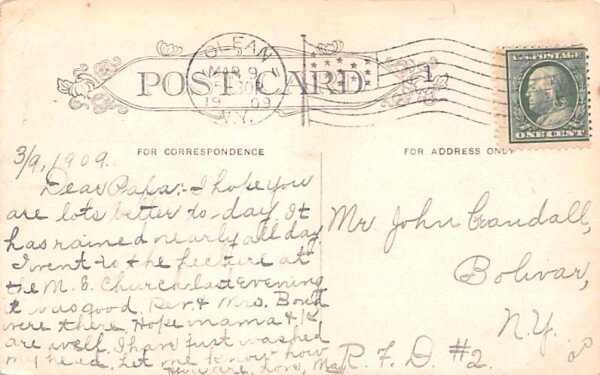 OLEAN
MAR 9
530 P
1909
N.Y.
1
U.S. POSTAGE
ONE CENT
POST CARD
FOR CORRESPONDENCE
FOR ADDRESS ONLY
3/9, 1909.
Dear Papa:- I hope you
are lots better to-day. It
has rained nearly all day.
I went to the lecture at
the M. E. Church last evening
it was good. Rev. & Mrs. Bond
were there. Hope mama &
are well. I have just washed
my head. Let me know how
you are. Love, May
Mr John Crandall,
Bolivar,
N.Y.
R. F. D. #2.